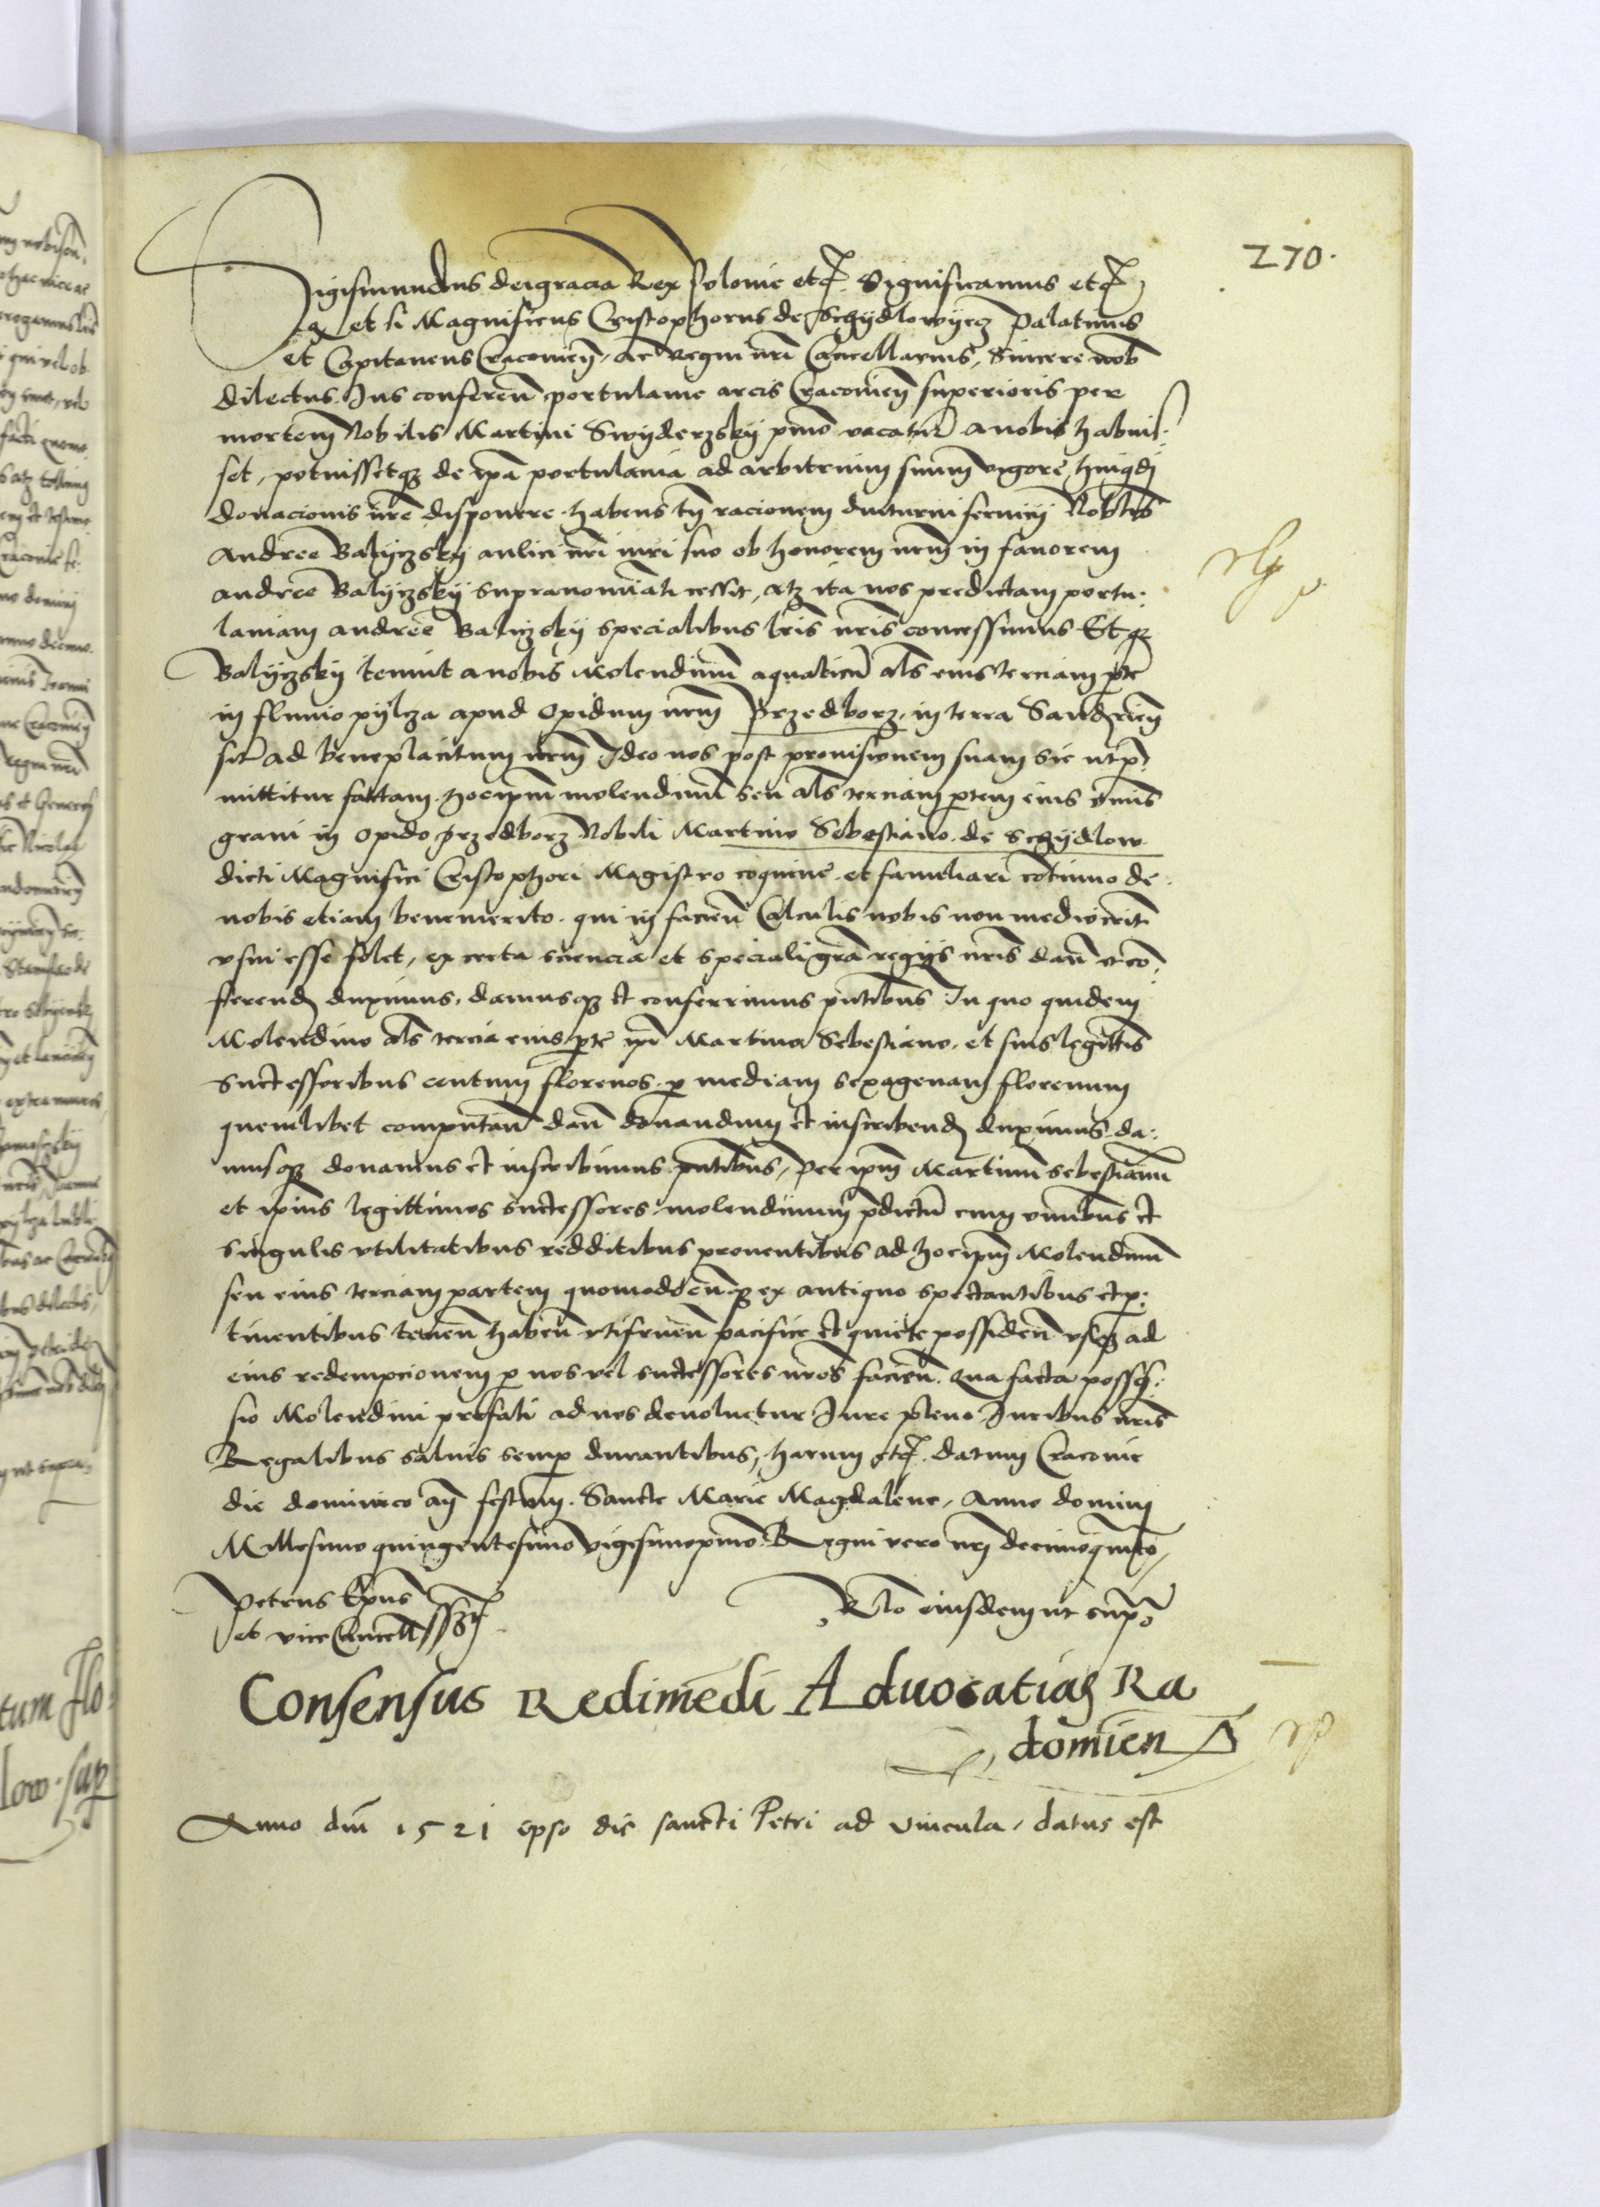 270.
Sigismundus dei gracia Rex Polonie etc. Significamus etc.
q et si Magnificus Cristophorus de Schydlowyecz Palatinus
et Capitaneus Cracovien̄ ac Regni nr̄i Cancellarius, Sincere nob̄
dilectus. Ius conferen̄ portulanie arcis Cracovien̄ superioris per
mortem Nobilis Martini Swyderzsky pm̄o vacatur̄ a nobis habuis-
set, potuissetqȝ de ip̄a portulania ad arbitrium suum vigore huiq̄di
donacionis nr̄e disponere. habens tn̄ racionem diuturni servicij Nobilis
Andree Balyczsky aulici nr̄i iuri suo ob honorem nr̄m in favorem
andree Balyczsky supranominati cessit, atqȝ ita nos predictam portu-
laniam andree Baliczsky specialibus lr̄is nr̄is concessimus Et qȝ
Balyczsky tenuit a nobis Molendinū aquaticū als̄ eius terciam p̄te
in fluvio pylcza apud Opidum nr̄m Przedborz, in terra Sandomirien̄
sit̄ ad beneplacitum nr̄m. Ideo nos post provisionem suam sic ut p̄-
mittitur factam. hocip̄m molendinū seu als̄ terciam p̄tem eius
in Opido Przedborz Nobili Martino Sebestiano de Schydlow
dicti Magnifici Cristophori Magistro coquine et familiari cōtinuo de
nobis etiam benemerito. qui in facien̄ Calculis nobis non mediocrit̄
usui esse solet, ex certa sciencia et speciali gr̄a regijs nr̄is dan̄ et cō-
fferend̄ duximus, damusqȝ et conferrimus pn̄tibus. In quo quidem
Molendino als̄ tercia eius p̄te ip̄i Martino Sebestiano, et suis legittīs
Successoribus centum florenos p̄ mediam sexagenam florenum
quemlibet computan̄ dan̄ donandum et inscribend̄ duximus da-
musqȝ donamus et inscribimus pn̄tibus, Per ip̄m Martinū sebestianū
et ip̄ius legittimos successores molendinum p̄dictū cum om̄ibus et
Singulis utilitatibus redditibus proventibus ad hocip̄m Molendinū
seu eius terciam partem quomodocunqȝ ex antiquo spectantibus et p̄-
tinentibus tenen̄ haben̄ utifruen̄ pacifice et quiete possiden̄ usqȝ ad
eius redempcionem p̄ nos vel successores nr̄os facien̄. Qua facta posses-
sio Molendini prefati ad nos devolvetur Iure pleno. Iuribus nr̄is
Regalibus salvis semp̄ durantibus, harum etc. datum Cracovie
die dominico an̄ festum Sancte Marie Magdalene, Anno domini
Millesimo quingentesimo vigesimoprimo. Regni vero nr̄i decimoquinto,
Petrus Ep̄us
et vice Cancell. ss̄t
Rl̄o eiusdem ut sup̄
Consensus Redimēdi Aduocatiaȝ Ra
domien̄
Anno dn̄i 1521 ipso die sancti Petri ad vincula, datus est